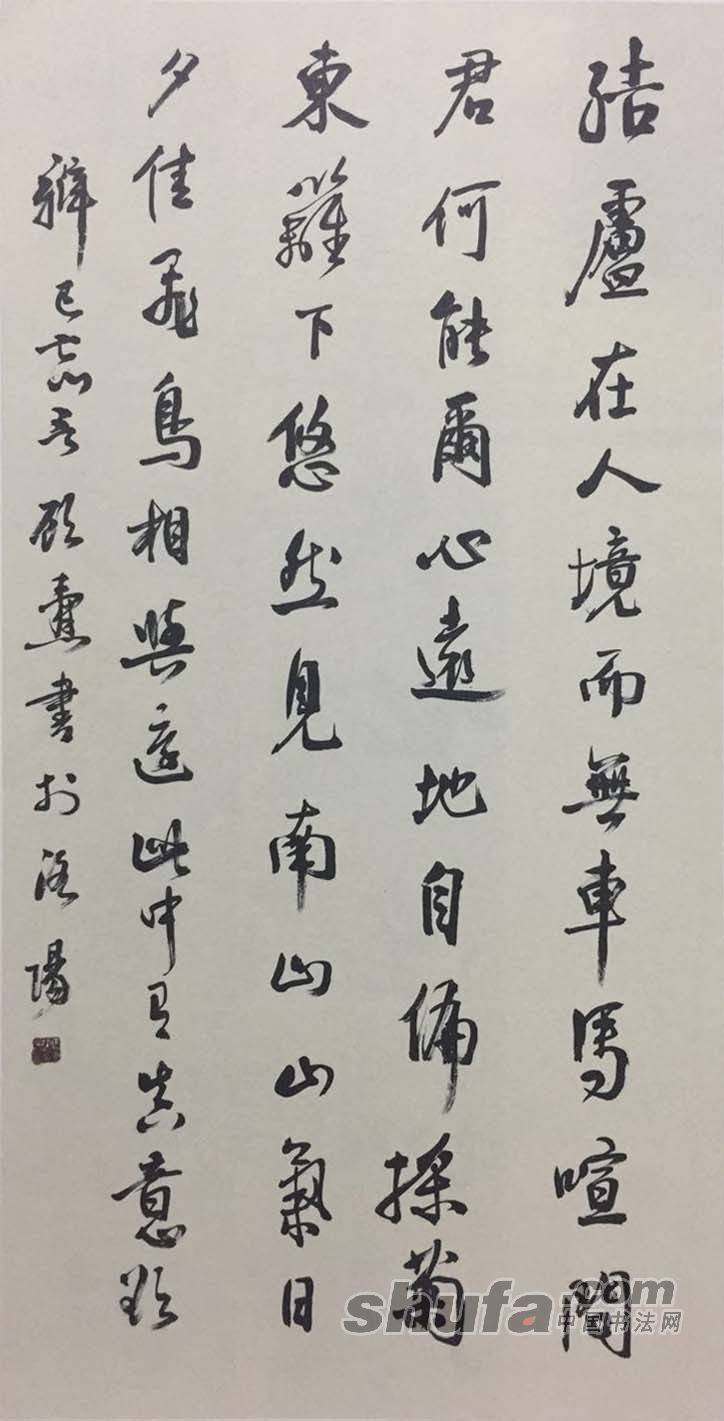 結廬在人境而無車馬喧問
君何能爾心遠地自偏採菊
東籬下悠然見南山山氣日
夕佳飛鳥相與還此中有真意欲
辨已忘言書於洛陽
shufa.com
中国书法网